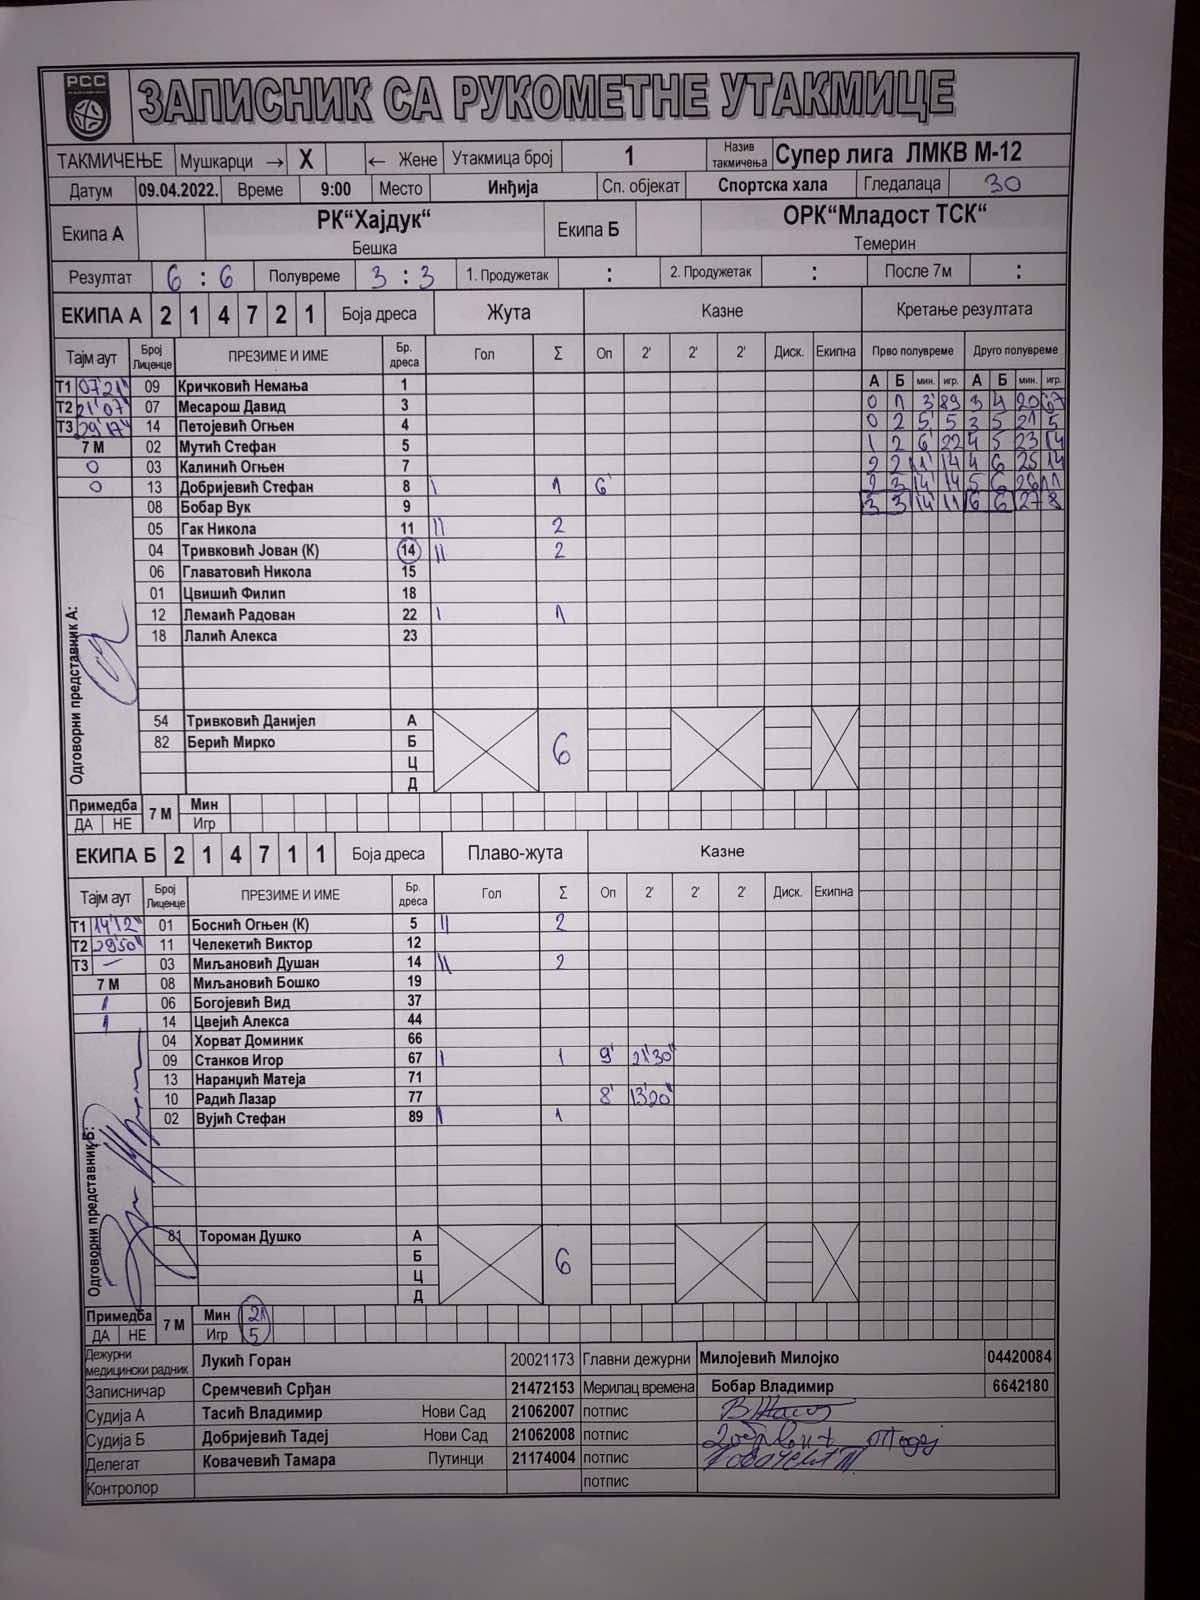 РСС
ЗАПИСНИК СА РУКОМЕТНЕ УТАКМИЦЕ
ТАКМИЧЕЊЕ Мушкарци → X ← Жене Утакмица број 1 Назив такмичења Супер лига ЛМКВ М-12
Датум 09.04.2022. Време 9:00 Место Инђија Сп. објекат Спортска хала Гледалаца 30
Екипа А РК“Хајдук“ Бешка Екипа Б ОРК“Младост ТСК“ Темерин
Резултат 6 : 6 Полувреме 3 : 3 1. Продужетак : 2. Продужетак : После 7м :
ЕКИПА А 2 1 4 7 2 1 Боја дреса Жута Казне Кретање резултата
Тајм аут Број Лиценце ПРЕЗИМЕ И ИМЕ Бр. дреса Гол Σ Оп 2' 2' 2' Диск. Екипна Прво полувреме Друго полувреме
А Б мин. игр. А Б мин. игр.
Т1 07'21" 09 Кричковић Немања 1
Т2 21'07" 07 Месарош Давид 3 0 1 3' 89 3 4 20 67
Т3 29'17" 14 Петојевић Огњен 4 0 2 5' 5 3 5 21 5
7 М 02 Мутић Стефан 5 1 2 6' 22 4 5 23 14
0 03 Калинић Огњен 7 2 2 11' 14 4 6 25 14
0 13 Добријевић Стефан 8 I 1 6' 2 3 14' 14 5 6 26 11
08 Бобар Вук 9 3 3 14' 11 6 6 27 8
05 Гак Никола 11 II 2
04 Тривковић Јован (К) 14 II 2
06 Главатовић Никола 15
01 Цвишић Филип 18
12 Лемаић Радован 22 I 1
18 Лалић Алекса 23
Одговорни представник А:
54 Тривковић Данијел А
82 Берић Мирко Б 6
Ц
Д
Примедба 7 М Мин
ДА НЕ Игр
ЕКИПА Б 2 1 4 7 1 1 Боја дреса Плаво-жута Казне
Тајм аут Број Лиценце ПРЕЗИМЕ И ИМЕ Бр. дреса Гол Σ Оп 2' 2' 2' Диск. Екипна
Т1 14'12" 01 Боснић Огњен (К) 5 II 2
Т2 29'50" 11 Челекетић Виктор 12
Т3 — 03 Миљановић Душан 14 II 2
7 М 08 Миљановић Бошко 19
1 06 Богојевић Вид 37
1 14 Цвејић Алекса 44
04 Хорват Доминик 66
09 Станков Игор 67 I 1 9' 21'30"
13 Наранџић Матеја 71
10 Радић Лазар 77 8' 13'20"
02 Вујић Стефан 89 I 1
Одговорни представник Б:
81 Тороман Душко А
Б 6
Ц
Д
Примедба 7 М Мин 21
ДА НЕ Игр 5
Дежурни медицински радник Лукић Горан 20021173 Главни дежурни Милојевић Милојко 04420084
Записничар Сремчевић Срђан 21472153 Мерилац времена Бобар Владимир 6642180
Судија А Тасић Владимир Нови Сад 21062007 потпис
Судија Б Добријевић Тадеј Нови Сад 21062008 потпис
Делегат Ковачевић Тамара Путинци 21174004 потпис Ковачевић Т.
Контролор потпис